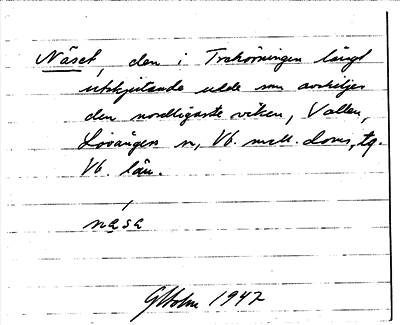 Näset, den i Trehörningen långt
utskjutande udde som avskiljer
den nordligaste viken, Vallen,
Lövångers sn, Vb. mell. doms. tg.
Vb. län.
nasa
GHolm 1947